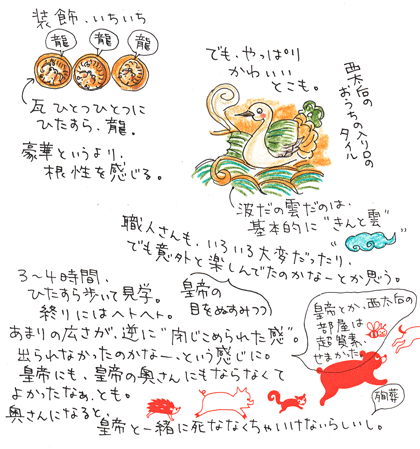 装飾、いちいち
龍
龍
龍
瓦ひとつひとつに
ひたすら、龍。
豪華というより、
根性を感じる。
でも、やっぱり
かわいい
とこも。
西太后の
おうちの入り口の
タイル
波だの雲だのは、
基本的に“きんと雲”
職人さんも、いろいろ大変だったり、
でも意外と楽しんでたのかなーとか思う。
皇帝の
目をぬすみつつ
3〜4時間、
ひたすら歩いて見学。
終りにはヘトヘト。
あまりの広さが、逆に“閉じこめられた感”。
出られなかったのかなー、という感じに。
皇帝にも、皇帝の奥さんにもならなくて
よかったなぁ、とも。
奥さんになると、
皇帝と一緒に死ななくちゃいけないらしいし。
皇帝とか、西太后の
部屋は
超質素。
せまかった
殉葬